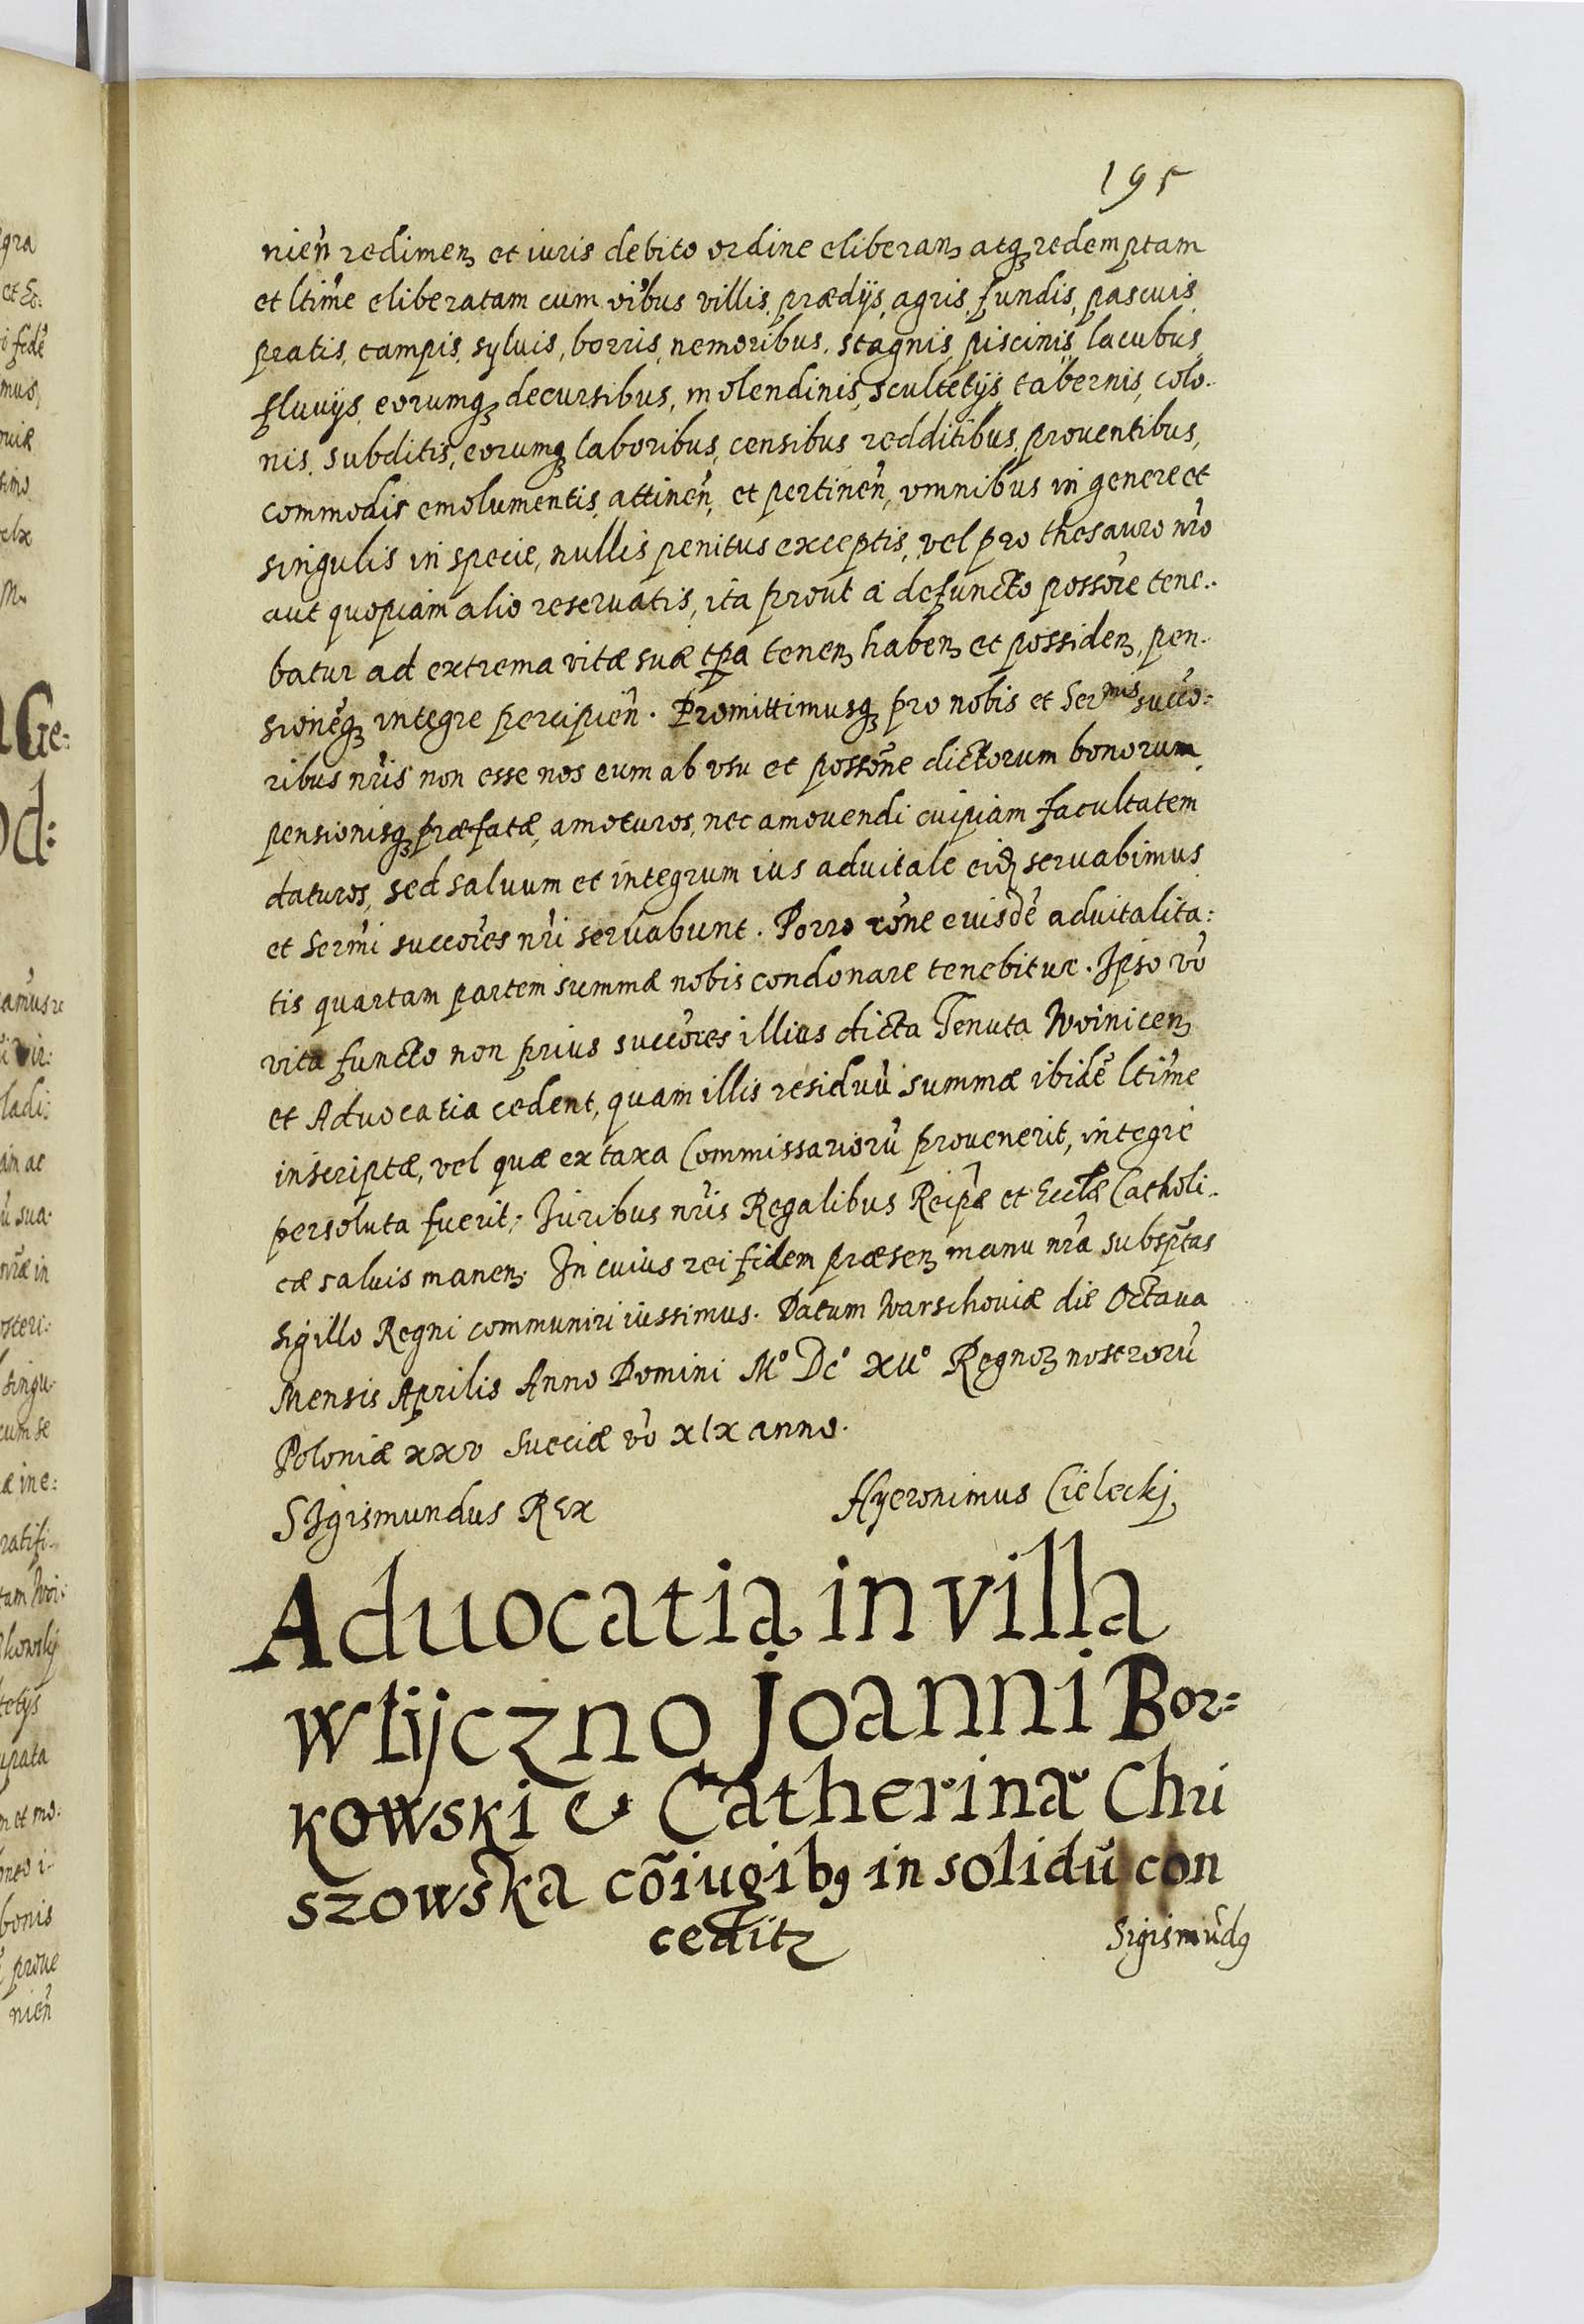 195
nien̄ redimen̄ et iuris debito ordine eliberan̄ atqꝫ redemptam
et ltime eliberatam cum oībus villis, prædijs, agris, fundis, pascuis
pratis, campis, syluis, borris, nemoribus, stagnis, piscinis, lacubus,
fluvijs, eorumqꝫ decursibus, molendinis, scultetijs, tabernis, colo-
nis, subditis, eorumqꝫ laboribus, censibus redditibus, prouentibus,
commodis emolumentis, attinen̄, et pertinen̄, omnibus in genere et
singulis in specie, nullis penitus exceptis, vel pro thesauro nr̄o
aut quopiam alio reseruatis, ita prout a defuncto possōre tene-
batur ad extrema vitæ suæ tp̄a tenenꝫ habenꝫ et possidenꝫ, pen-
sionēqꝫ integre percipien̄. Promittimusqꝫ pro nobis et Ser^mis succo:
ribus nr̄is non esse nos eum ab vsu et possōne dictorum bonorum
pensionisqꝫ præfatæ, amoturos, nec amouendi cuipiam facultatem
daturos, sed saluum et integrum ius aduitale eidꝫ seruabimus
et Ser̄mi succōres nr̄i seruabunt. Porro rōne euisdē aduitalita:
tis quartam partem summæ nobis condonare tenebitur. Ipso vō
vita functo non prius succōres illius dicta Tenuta Woinicenꝫ
et Aduocatia cedent, quam illis residuū summæ ibidē ltīme
inscriptæ, vel quæ ex taxa Commissariorū prouenerit, integre
persoluta fuerit; Iuribus nr̄is Regalibus Reip̄æ et Eccl̄æ Catholi-
cæ saluis manenꝫ. In cuius rei fidem præsenꝫ manu nr̄a subsp̄tas
Sigillo Regni communiri iussimus. Datum Warschouiæ die Octaua
Mensis Aprilis Anno Domini M° Dc° XII° Regnoꝝ nostrorū
Poloniæ xxv Sueciæ vō xIx anno.
SIgismundus REx Hyeronimus Cieleckj
Aduocatia in villa
Wlijczno Joanni Bor=
kowski & Catherinæ Chu
szowska cōiugibꝰ in solidū con
ceditꝛ Sigismūdꝰ